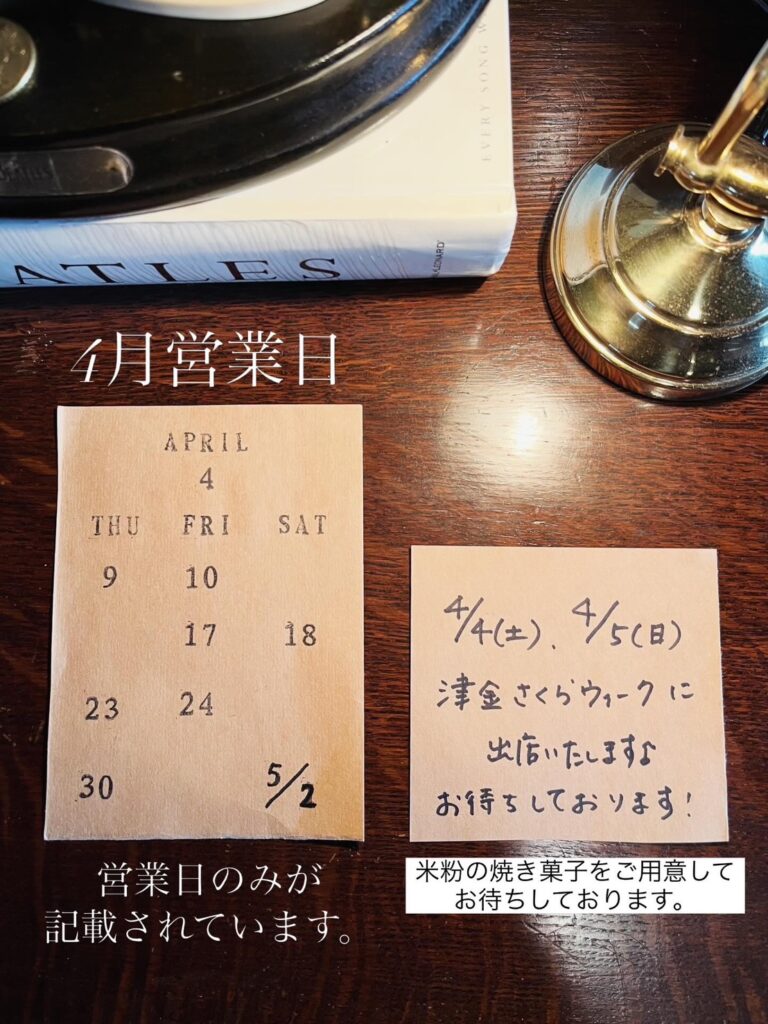 EVERY SONG W
ATLES
4月営業日
APRIL
4
THU FRI SAT
9 10
17 18
23 24
30 5/2
営業日のみが
記載されています。
4/4(土)、4/5(日)
津金さくらウィークに
出店いたします♪
お待ちしております!
米粉の焼き菓子をご用意して
お待ちしております。